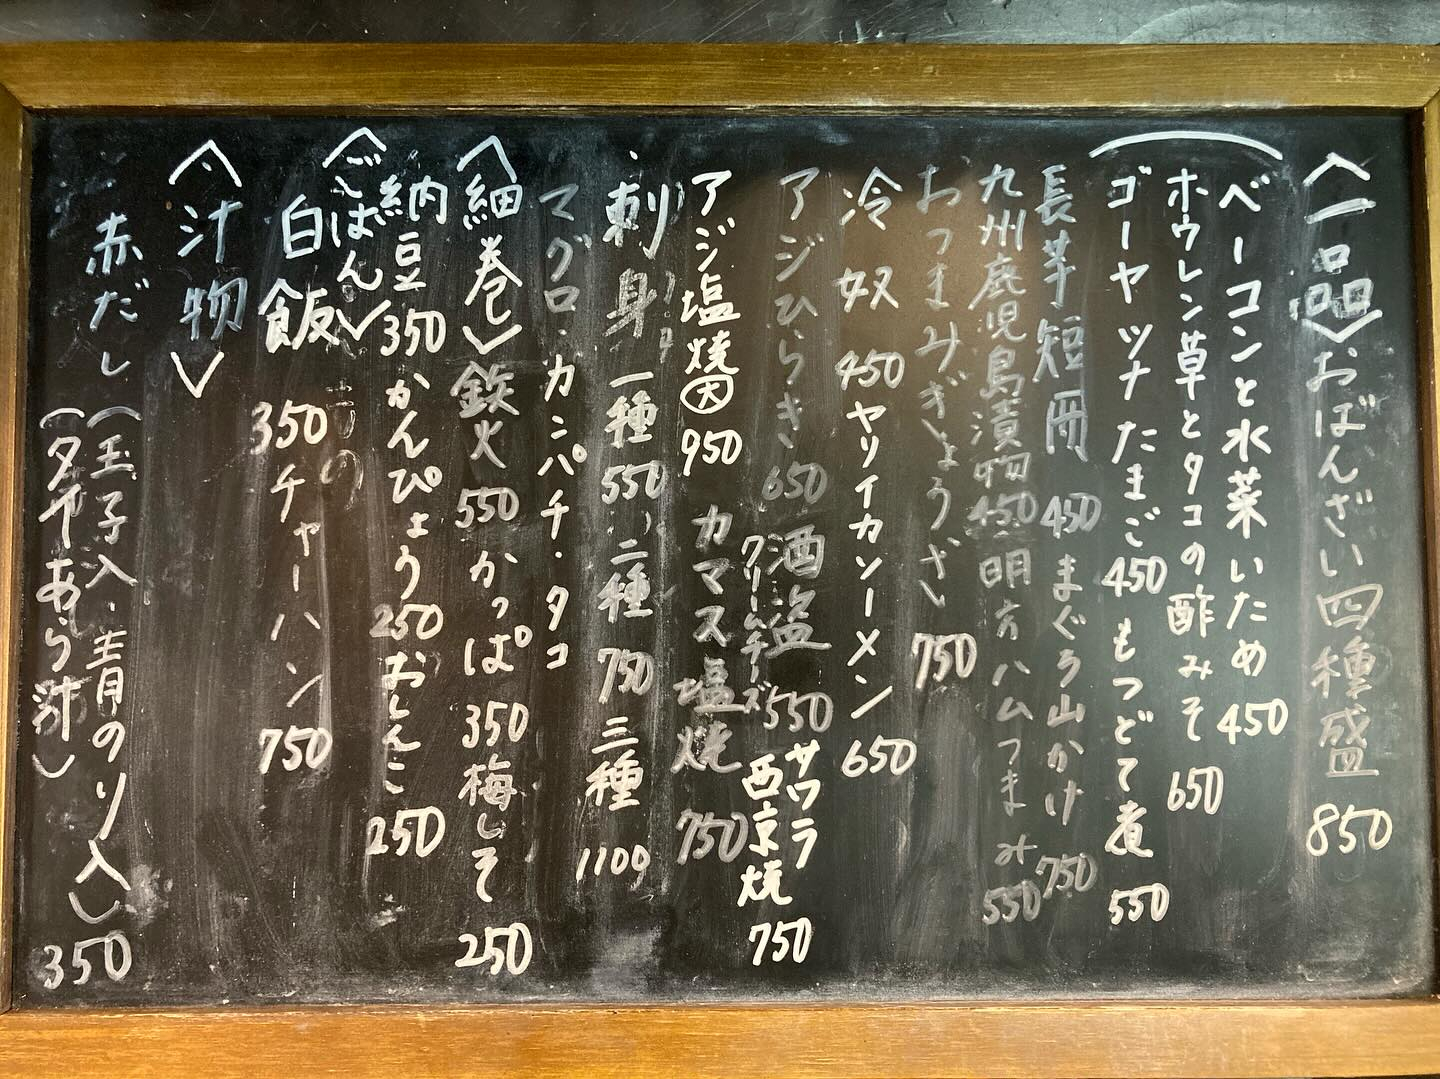 〈一品〉おばんざい四種盛 850
ベーコンと水菜いため 450
ホウレン草とタコの酢みそ 650
ゴーヤツナたまご 450 もつどて煮 550
長芋短冊 450 まぐろ山かけ 750
九州鹿児島漬物 450 明方ハムつまみ 550
おつまみぎょうざ 750
冷奴 450 ヤリイカソーメン 650
アジひらき 650 酒盗クリームチーズ 550 サワラ西京焼 750
アジ塩焼大 950 カマス塩焼 750
刺身 一種 550 二種 750 三種 1100
マグロ・カンパチ・タコ
〈細巻〉鉄火 550 かっぱ 350 梅しそ 250
納豆 350 かんぴょう 250 おしんこ 250
〈ごはん〉
白飯 350 チャーハン 750
〈汁物〉
赤だし (玉子入・青のり入) 350
(タヤあら汁)